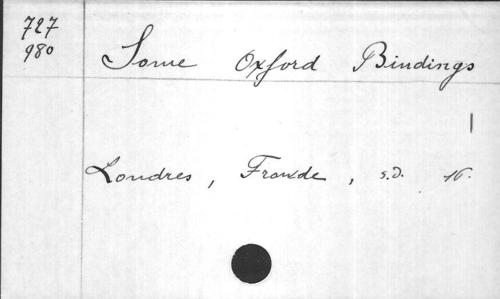 727
980
Some Oxford Bindings
Londres, Frowde, s.d. 16.